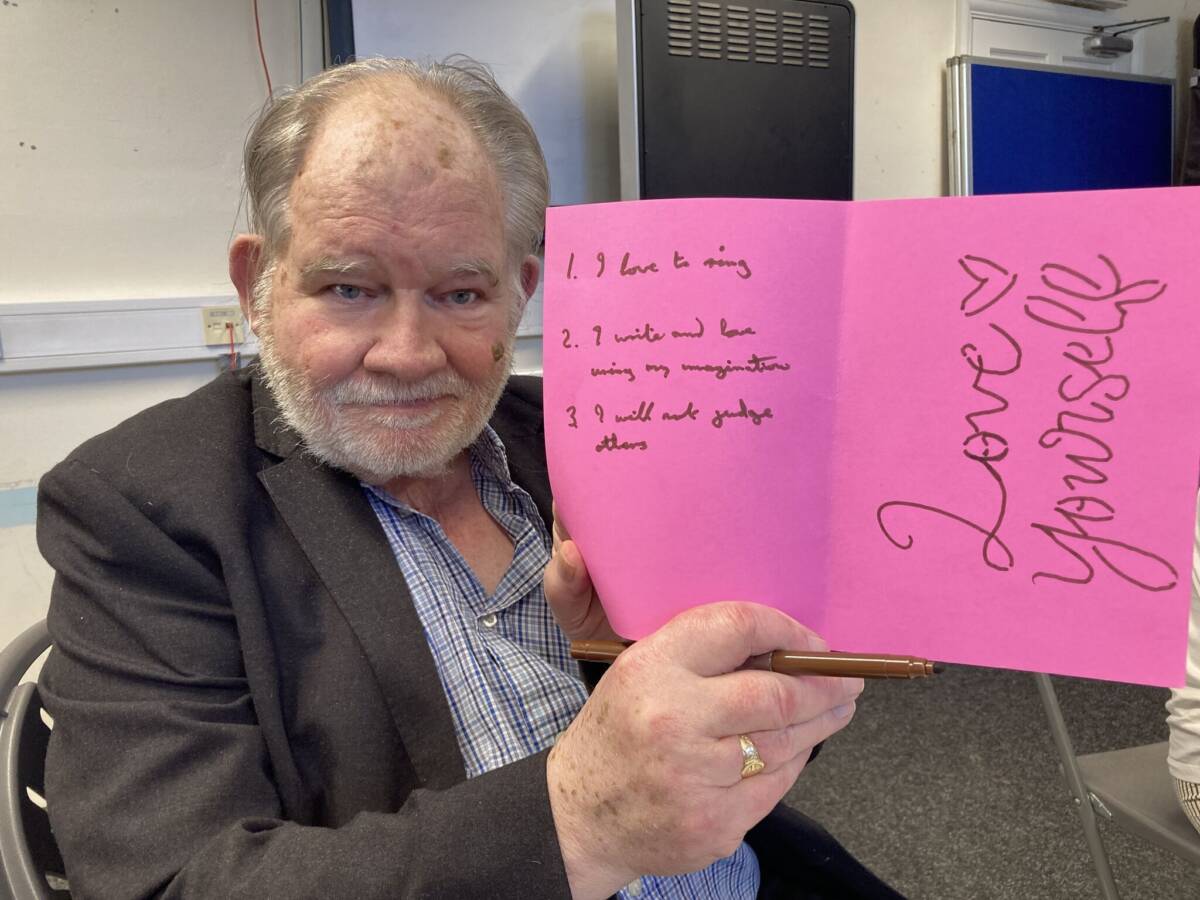 1. I love to sing
2. I write and love
using my imagination
3. I will not judge
others
Love ♡
Yourself